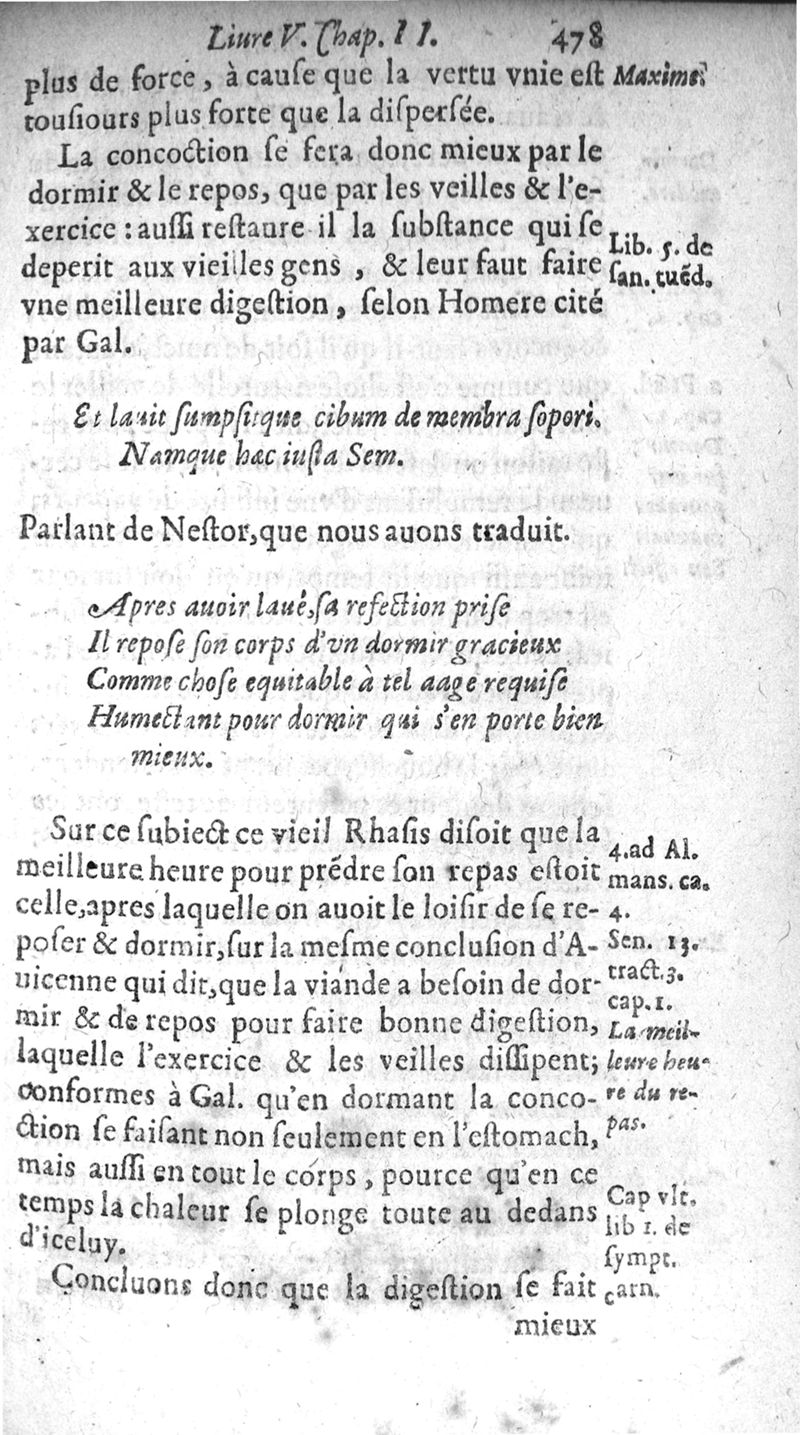 Liure V. Chap. 11. 478
plus de force, à cauſe que la vertu vnie eſt
touſiours plus forte que la diſperſée.
La concoction ſe fera donc mieux par le
dormir & le repos, que par les veilles & l'e-
xercice : auſſi reſtaure il la ſubſtance qui ſe
deperit aux vieilles gens , & leur faut faire
vne meilleure digeſtion, ſelon Homere cité
par Gal.
Et lauit ſumpſitque cibum de membra ſopori.
Namque hæc iuſta Sem.
Parlant de Neſtor, que nous auons traduit.
Apres auoir laué, ſa refection priſe
Il repoſe ſon corps d'vn dormir gracieux
Comme choſe equitable à tel aage requiſe
Humectant pour dormir qui s'en porte bien
mieux.
Sur ce ſubiect ce vieil Rhaſis diſoit que la
meilleure heure pour prẽdre ſon repas eſtoit
celle, apres laquelle on auoit le loiſir de ſe re-
poſer & dormir, ſur la meſme concluſion d'A-
uicenne qui dit, que la viande a beſoin de dor-
mir & de repos pour faire bonne digeſtion,
laquelle l'exercice & les veilles diſſipent;
conformes à Gal. qu'en dormant la conco-
ction ſe faiſant non ſeulement en l'eſtomach,
mais auſſi en tout le corps, pource qu'en ce
temps la chaleur ſe plonge toute au dedans
d'iceluy.
Concluons donc que la digeſtion ſe fait
mieux
Maxime.
Lib. 5. de
ſan. tuẽd.
4.ad Al.
mans. ca.
4.
Sen. 13.
tract.3.
cap.1.
La meil-
leure heu-
re du re-
pas.
Cap vlt.
lib 1. de
ſympt.
carn.